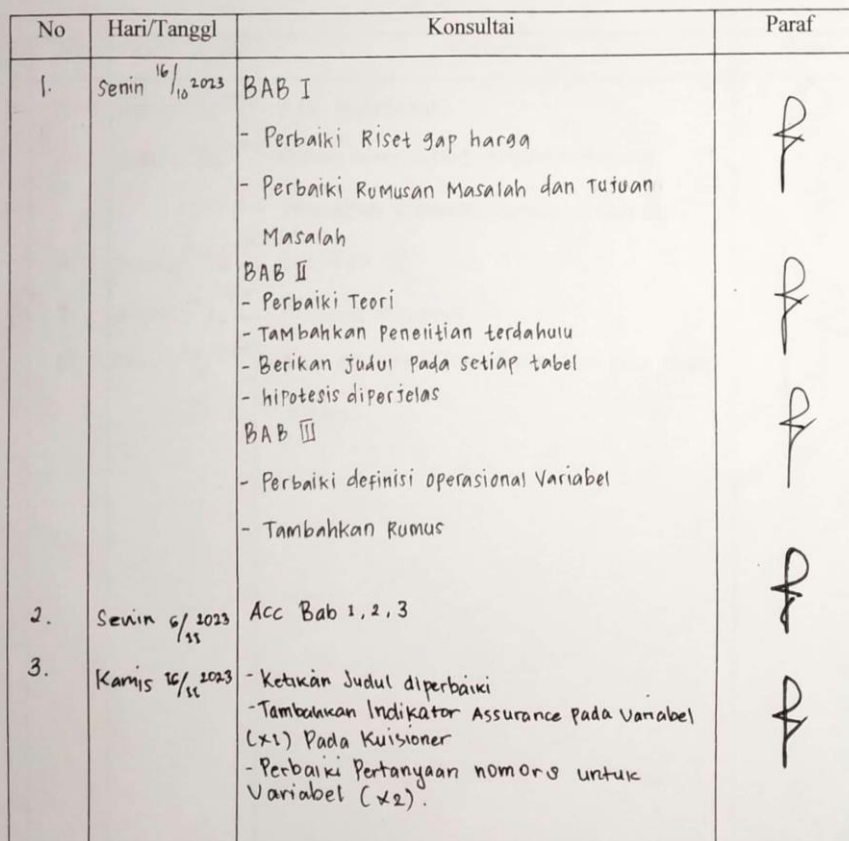 No Hari/Tanggl Konsultai Paraf
1. Senin 16/10 2023 BAB I
- Perbaiki Riset gap harga
- Perbaiki Rumusan Masalah dan Tujuan
Masalah
BAB II
- Perbaiki Teori
- Tambahkan Penelitian terdahulu
- Berikan judul Pada setiap tabel
- hipotesis diperjelas
BAB III
- Perbaiki definisi operasional Variabel
- Tambahkan Rumus
2. Senin 6/11 2023 Acc Bab 1, 2, 3
3. Kamis 16/11 2023 - Ketikan Judul diperbaiki
- Tambahkan Indikator Assurance pada Variabel
(x1) Pada Kuisioner
- Perbaiki Pertanyaan nomor untuk
Variabel (x2).